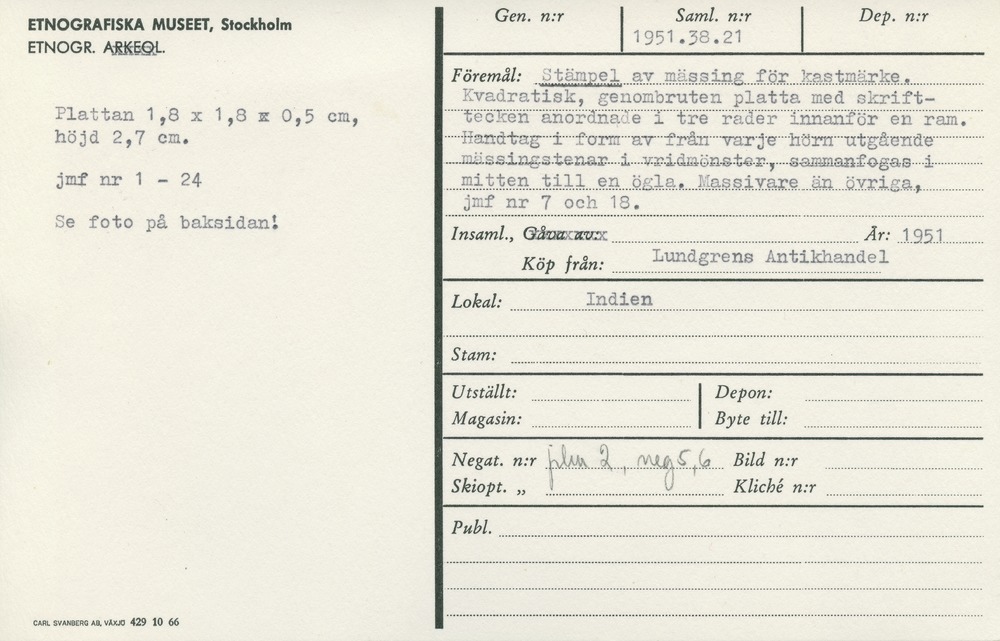 ETNOGRAFISKA MUSEET, Stockholm
ETNOGR. ARKEOL.
Plattan 1,8 x 1,8 x 0,5 cm,
höjd 2,7 cm.
jmf nr 1 - 24
Se foto på baksidan!
CARL SVANBERG AB, VÄXJÖ 429 10 66
Gen. n:r
Saml. n:r
Dep. n:r
1951.38.21
Föremål: Stämpel av mässing för kastmärke.
Kvadratisk, genombruten platta med skrift-
tecken anordnade i tre rader innanför en ram.
Handtag i form av från varje hörn utgående
mässingstenar i vridmönster, sammanfogas i
mitten till en ögla. Massivare än övriga,
jmf nr 7 och 18.
Insaml., Gåva av: År: 1951
Köp från: Lundgrens Antikhandel
Lokal: Indien
Stam:
Utställt: Depon:
Magasin: Byte till:
Negat. n:r 2, neg 5,6 Bild n:r
Skiopt. „ Kliché n:r
Publ.